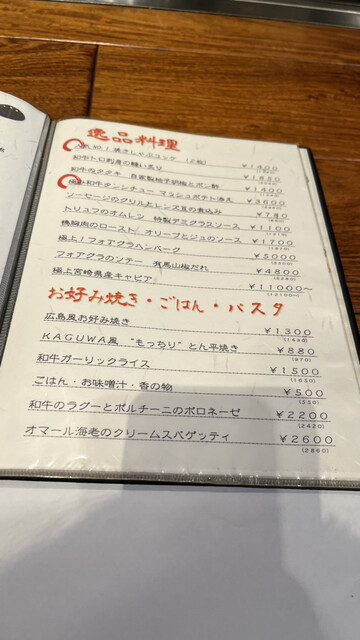 逸品料理
焼きしゃぶユッケ (2枚) ¥1400
和牛トロ刺身の軽い炙り ¥1850
和牛のタタキ 自家製柚子胡椒とポン酢 ¥1400
極上和牛タンシチュー マッシュポテト添え ¥3600
ソーセージのグリルとレンズ豆の煮込み ¥780
トリュフのオムレツ 特製デミグラスソース ¥1100
鴨胸肉のロースト オリーブとジュのソース ¥1700
極上!フォアグラハンバーグ ¥5000
フォアグラのソテー 有馬山椒だれ ¥4800
極上宮崎県産キャビア ¥11000〜
(12100〜)
お好み焼き・ごはん・パスタ
広島風お好み焼き ¥1300
(1430)
KAGUWA風 “もっちり”とん平焼き ¥880
(970)
和牛ガーリックライス ¥1500
(1650)
ごはん・お味噌汁・香の物 ¥500
(550)
和牛のラグーとポルチーニのボロネーゼ ¥2200
(2420)
オマール海老のクリームスパゲッティ ¥2600
(2860)